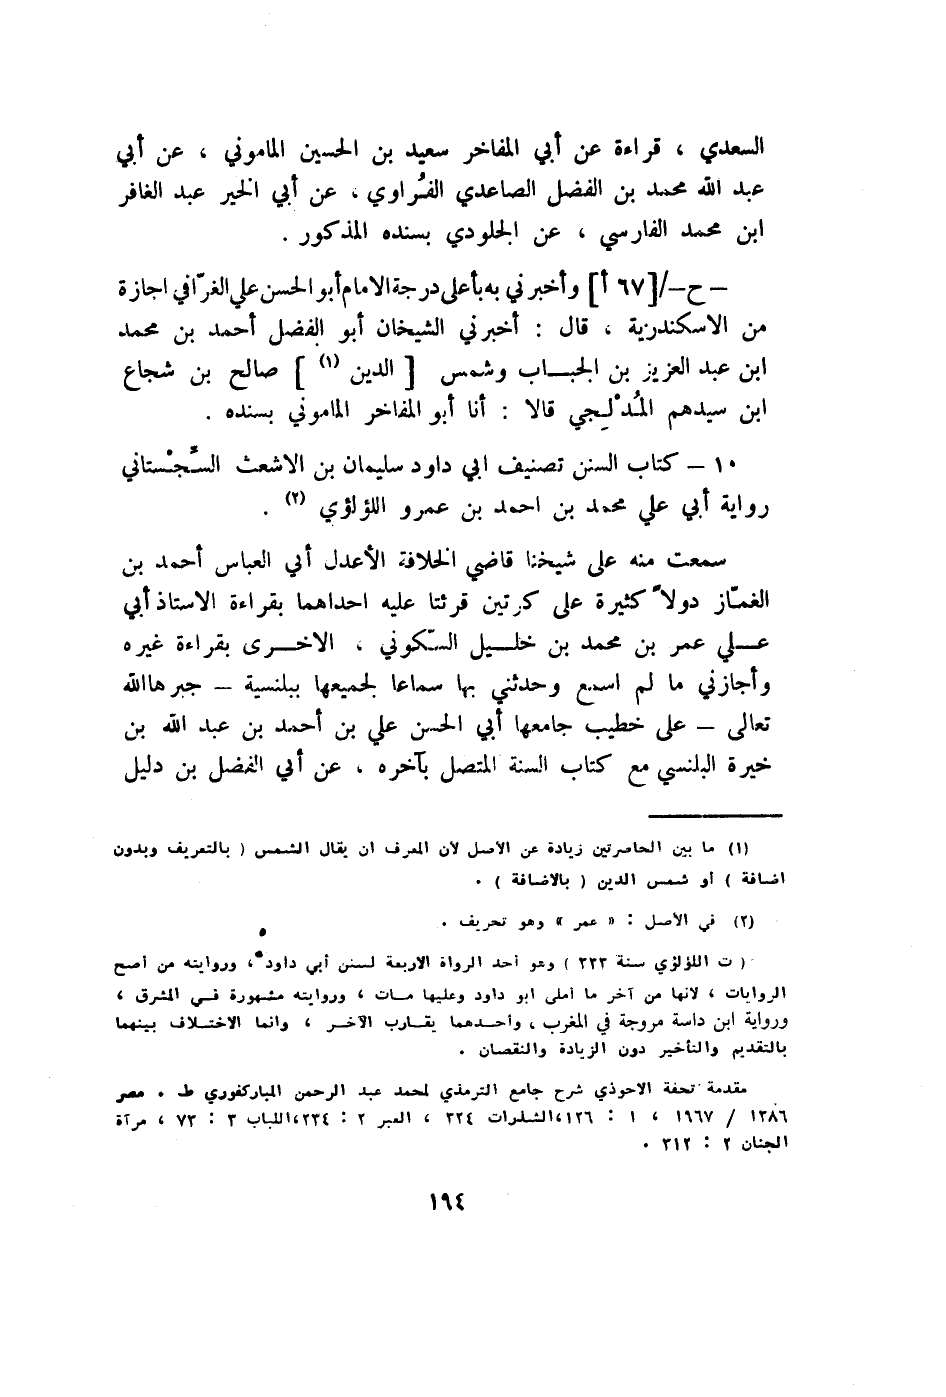 السعدي ، قراءة عن أبي المفاخر سعيد بن الحسين الماموني ، عن أبي
عبد الله محمد بن الفضل الصاعدي الفُراوي ، عن أبي الخير عبد الغافر
ابن محمد الفارسي ، عن الجلودي بسنده المذكور .
– ح –/[٦٧ أ] وأخبرني به بأعلى درجة الامام أبو الحسن علي الغرّافي اجازة
من الاسكندرية ، قال : أخبرني الشيخان أبو الفضل أحمد بن محمد
ابن عبد العزيز بن الجباب وشمس [ الدين (١) ] صالح بن شجاع
ابن سيدهم المُدْلِجي قالا : أنا أبو المفاخر الماموني بسنده .
١٠ – كتاب السنن تصنيف ابي داود سليمان بن الاشعث السَّجْستاني
رواية أبي علي محمد بن احمد بن عمرو اللؤلؤي (٢) .
سمعت منه على شيخنا قاضي الخلافة الأعدل أبي العباس أحمد بن
الغمّاز دولاً كثيرة على كرتين قرئتا عليه احداهما بقراءة الاستاذ أبي
علي عمر بن محمد بن خليل السّكوني ، الاخرى بقراءة غيره
وأجازني ما لم اسمع وحدثني بها سماعا لجميعها ببلنسية – جبرها الله
تعالى – على خطيب جامعها أبي الحسن علي بن أحمد بن عبد الله بن
خيرة البلنسي مع كتاب السنة المتصل بآخره ، عن أبي الفضل بن دليل
(١) ما بين الحاصرتين زيادة عن الاصل لان المعرف ان يقال الشمس ( بالتعريف وبدون
اضافة ) أو شمس الدين ( بالاضافة ) .
(٢) في الاصل : « عمر » وهو تحريف .
( ت اللؤلؤي سنة ٣٣٣ ) وهو أحد الرواة الاربعة لسنن أبي داود ، وروايته من أصح
الروايات ، لانها من آخر ما أملى ابو داود وعليها مات ، وروايته مشهورة في المشرق ،
ورواية ابن داسة مروجة في المغرب ، وأحدهما يقارب الآخر ، وانما الاختلاف بينهما
بالتقديم والتأخير دون الزيادة والنقصان .
مقدمة تحفة الاحوذي شرح جامع الترمذي لمحمد عبد الرحمن المباركفوري ط . مصر
١٣٨٦ / ١٩٦٧ ، ١ : ١٢٦،الشذرات ٣٣٤ ، العبر ٢ : ٢٣٤،اللباب ٣ : ٧٣ ، مرآة
الجنان ٢ : ٣١٢ .
١٩٤